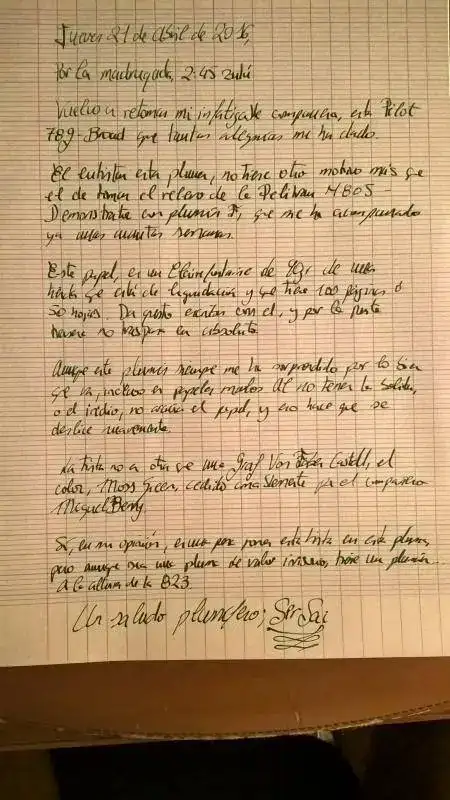 Jueves 21 de Abril de 2016,
Por la madrugada, 2:45 zulú
Vuelvo a retomar mi infatigable compañera, esta Pilot
78G-Broad que tantas alegrias me ha dado.
El entintar esta pluma, no tiene otro motivo más que
el de tomar el relevo de la Pelikan M805-
Demonstrator con plumín F, que me ha acompañado
ya unas cuantas semanas.
Este papel, es un Clairefontaine de 90gr de una
que está de liquidación y que tiene 100 páginas ó
50 hojas. Da gusto escribir con el, y por la parte
trasera no traspasa en absoluto.
Aunque este plumín siempre me ha sorprendido por lo bien
que va, incluso en papeles malos. Al no tener la
o el iridio, no araña el papel, y eso hace que se
deslice suavemente.
La tinta no es otra que una Graf Von Faber Castell, el
color, Moss Green, cedida por el compañero
Miguel Berry.
Si, en mi opinión, poner esta tinta en esta pluma,
pero aunque sea una pluma de valor irrisorio, tiene un plumín
a la altura de la 823.
Un saludo plumífero; Ser Sai